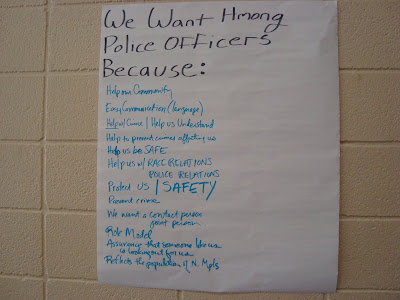 We Want Hmong
Police Officers
Because:
Help our Community
Easy Communication (language)
Help w/ Crime / Help us Understand
Help to prevent crimes affecting us
Help us be SAFE
Help us w/ RACE RELATIONS
POLICE RELATIONS
Protect US / SAFETY
Prevent crime
We want a contact person
point person
Role Model
Assurance that someone like us
is looking out for us
Reflects the population of N. Mpls